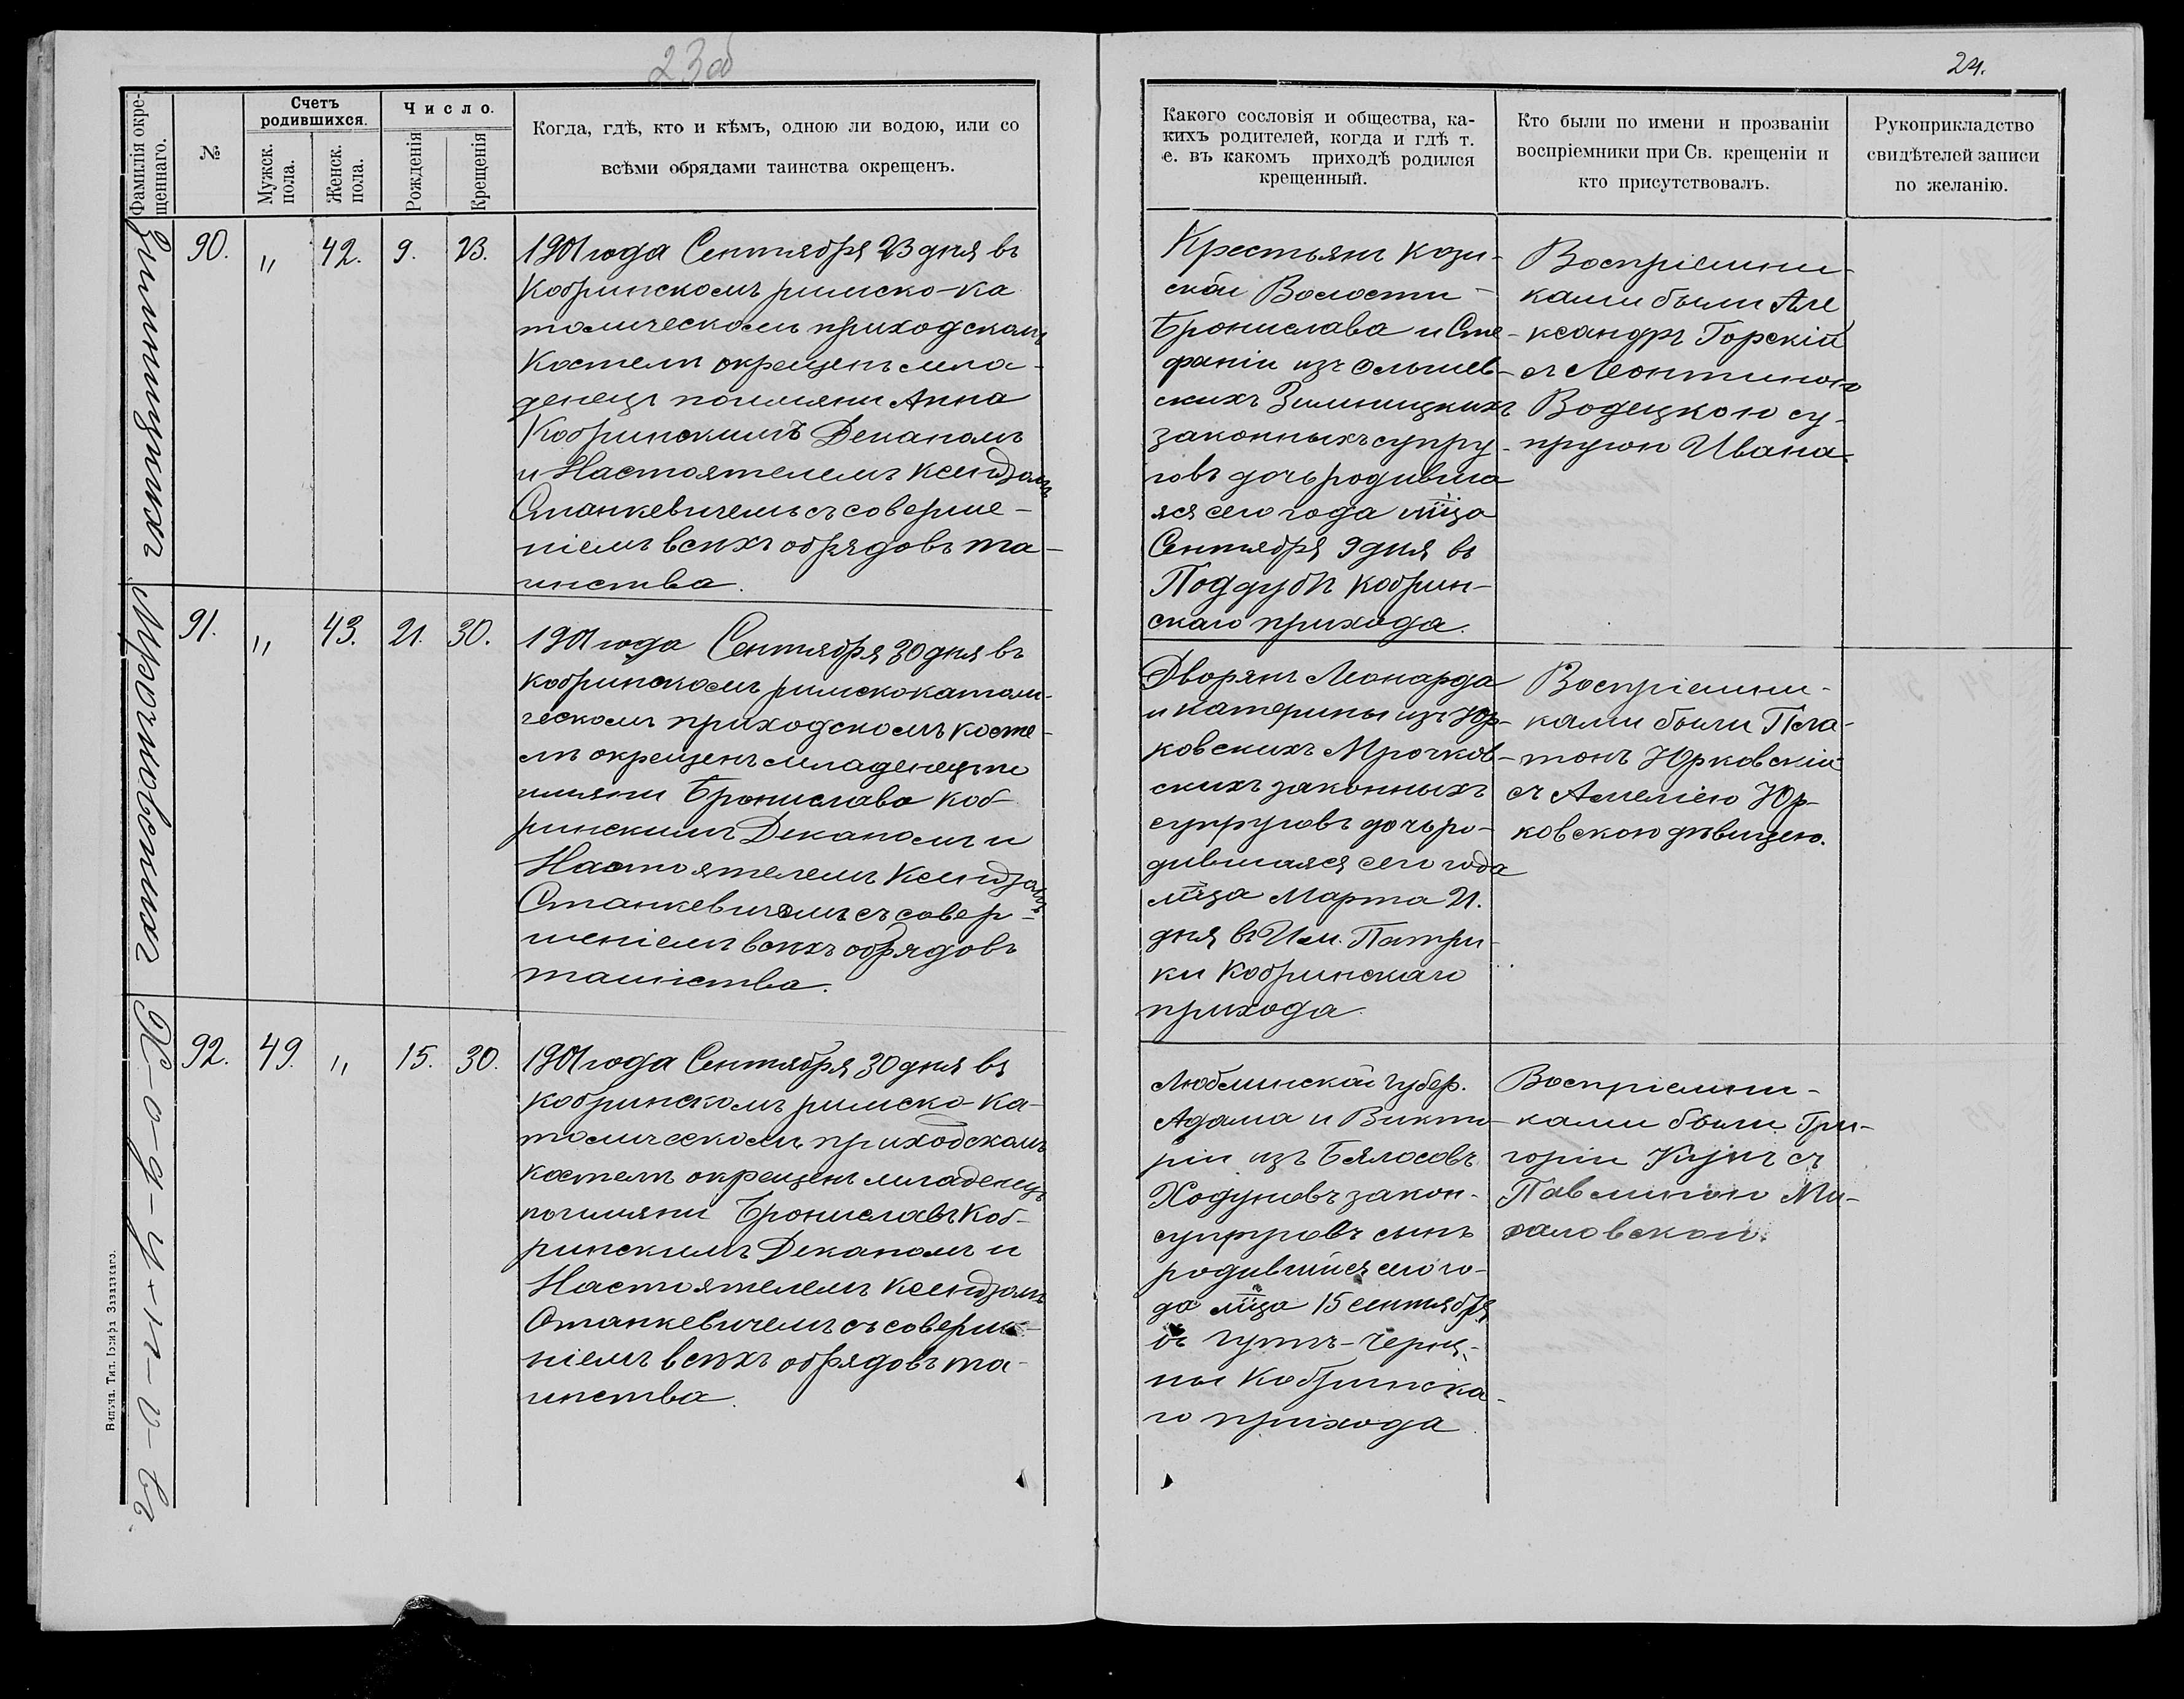 23об
24.
Фамилія окре-
щеннаго.
№
Счетъ
родившихся.
Мужск.
пола.
Женск.
пола.
Число.
Рожденія
Крещенія
Когда, гдѣ, кто и кѣмъ, одною ли водою, или со
всѣми обрядами таинства окрещенъ.
Какого сословія и общества, ка-
кихъ родителей, когда и гдѣ т.
е. въ какомъ приходѣ родился
крещенный.
Кто были по имени и прозваніи
воспріемники при Св. крещеніи и
кто присутствовалъ.
Рукоприкладство
свидѣтелей записи
по желанію.
Зимницкихъ
90. " 42. 9. 23.
1901 года Сентября 23 дня въ
Кобринскомъ римско-ка
толическомъ приходскомъ
Костелѣ окрещенъ мла-
денецъ поимяни Анна
Кобринскимъ Деканомъ
и Настоятелемъ Ксендзомъ
Станкевичемъ съ соверше-
ніемъ всѣхъ обрядовъ та-
инства.
Крестьянъ Кози-
ской Волости
Бронислава и Сте-
фаніи изъ Ольшев-
скихъ Зимницкихъ
законныхъ супру-
говъ дочь родивша
яся сего года мѣца
Сентября 9 дня въ
Поддубѣ Кобрин-
скаго прихода.
Воспріемни-
ками были Але
ксандръ Горскій
съ Леонтиною
Водецкою су-
пругою Ивана.
Мрочковскихъ
91. " 43. 21. 30.
1901 года Сентября 30 дня въ
Кобринскомъ римскокатоли-
ческомъ приходскомъ косте-
лѣ окрещенъ младенецъ по
имяни Бронислава Коб-
ринскимъ Деканомъ и
Настоятелемъ Ксендзомъ
Станкевичемъ съ совер-
шеніемъ всѣхъ обрядовъ
таинства.
Дворянъ Леонарда
и Катерины изъ Юр-
ковскихъ Мрочков-
скихъ законныхъ
супруговъ дочь ро-
дившаяся сего года
мѣца Марта 21.
дня въ Им. Патри-
ки Кобринскаго
прихода.
Воспріемни-
ками были Пла-
тонъ Юрковскій
съ Амеліею Юр-
ковскою дѣвицею.
Х-о-д-у-н-о-въ.
92. 49. " 15. 30.
1901 года Сентября 30 дня въ
Кобринскомъ римско-ка-
толическомъ приходскомъ
костелѣ окрещенъ младенецъ
поимяни Брониславъ Коб-
ринскимъ Деканомъ и
Настоятелемъ Ксендзомъ
Станкевичемъ съ соверше-
ніемъ всѣхъ обрядовъ та-
инства.
Люблинской губер.
Адама и Викто-
ріи изъ Бялосовъ
Ходуновъ закон.
супруговъ сынъ
родившійся сего го-
да мѣца 15 сентября
въ Гутѣ-Черня-
ны Кобринска-
го прихода
Воспріемни-
ками были Гри-
горій Кузичъ съ
Павлиною Ми-
халовской.
Вильна. Тип. Іосифа Завадзкаго.